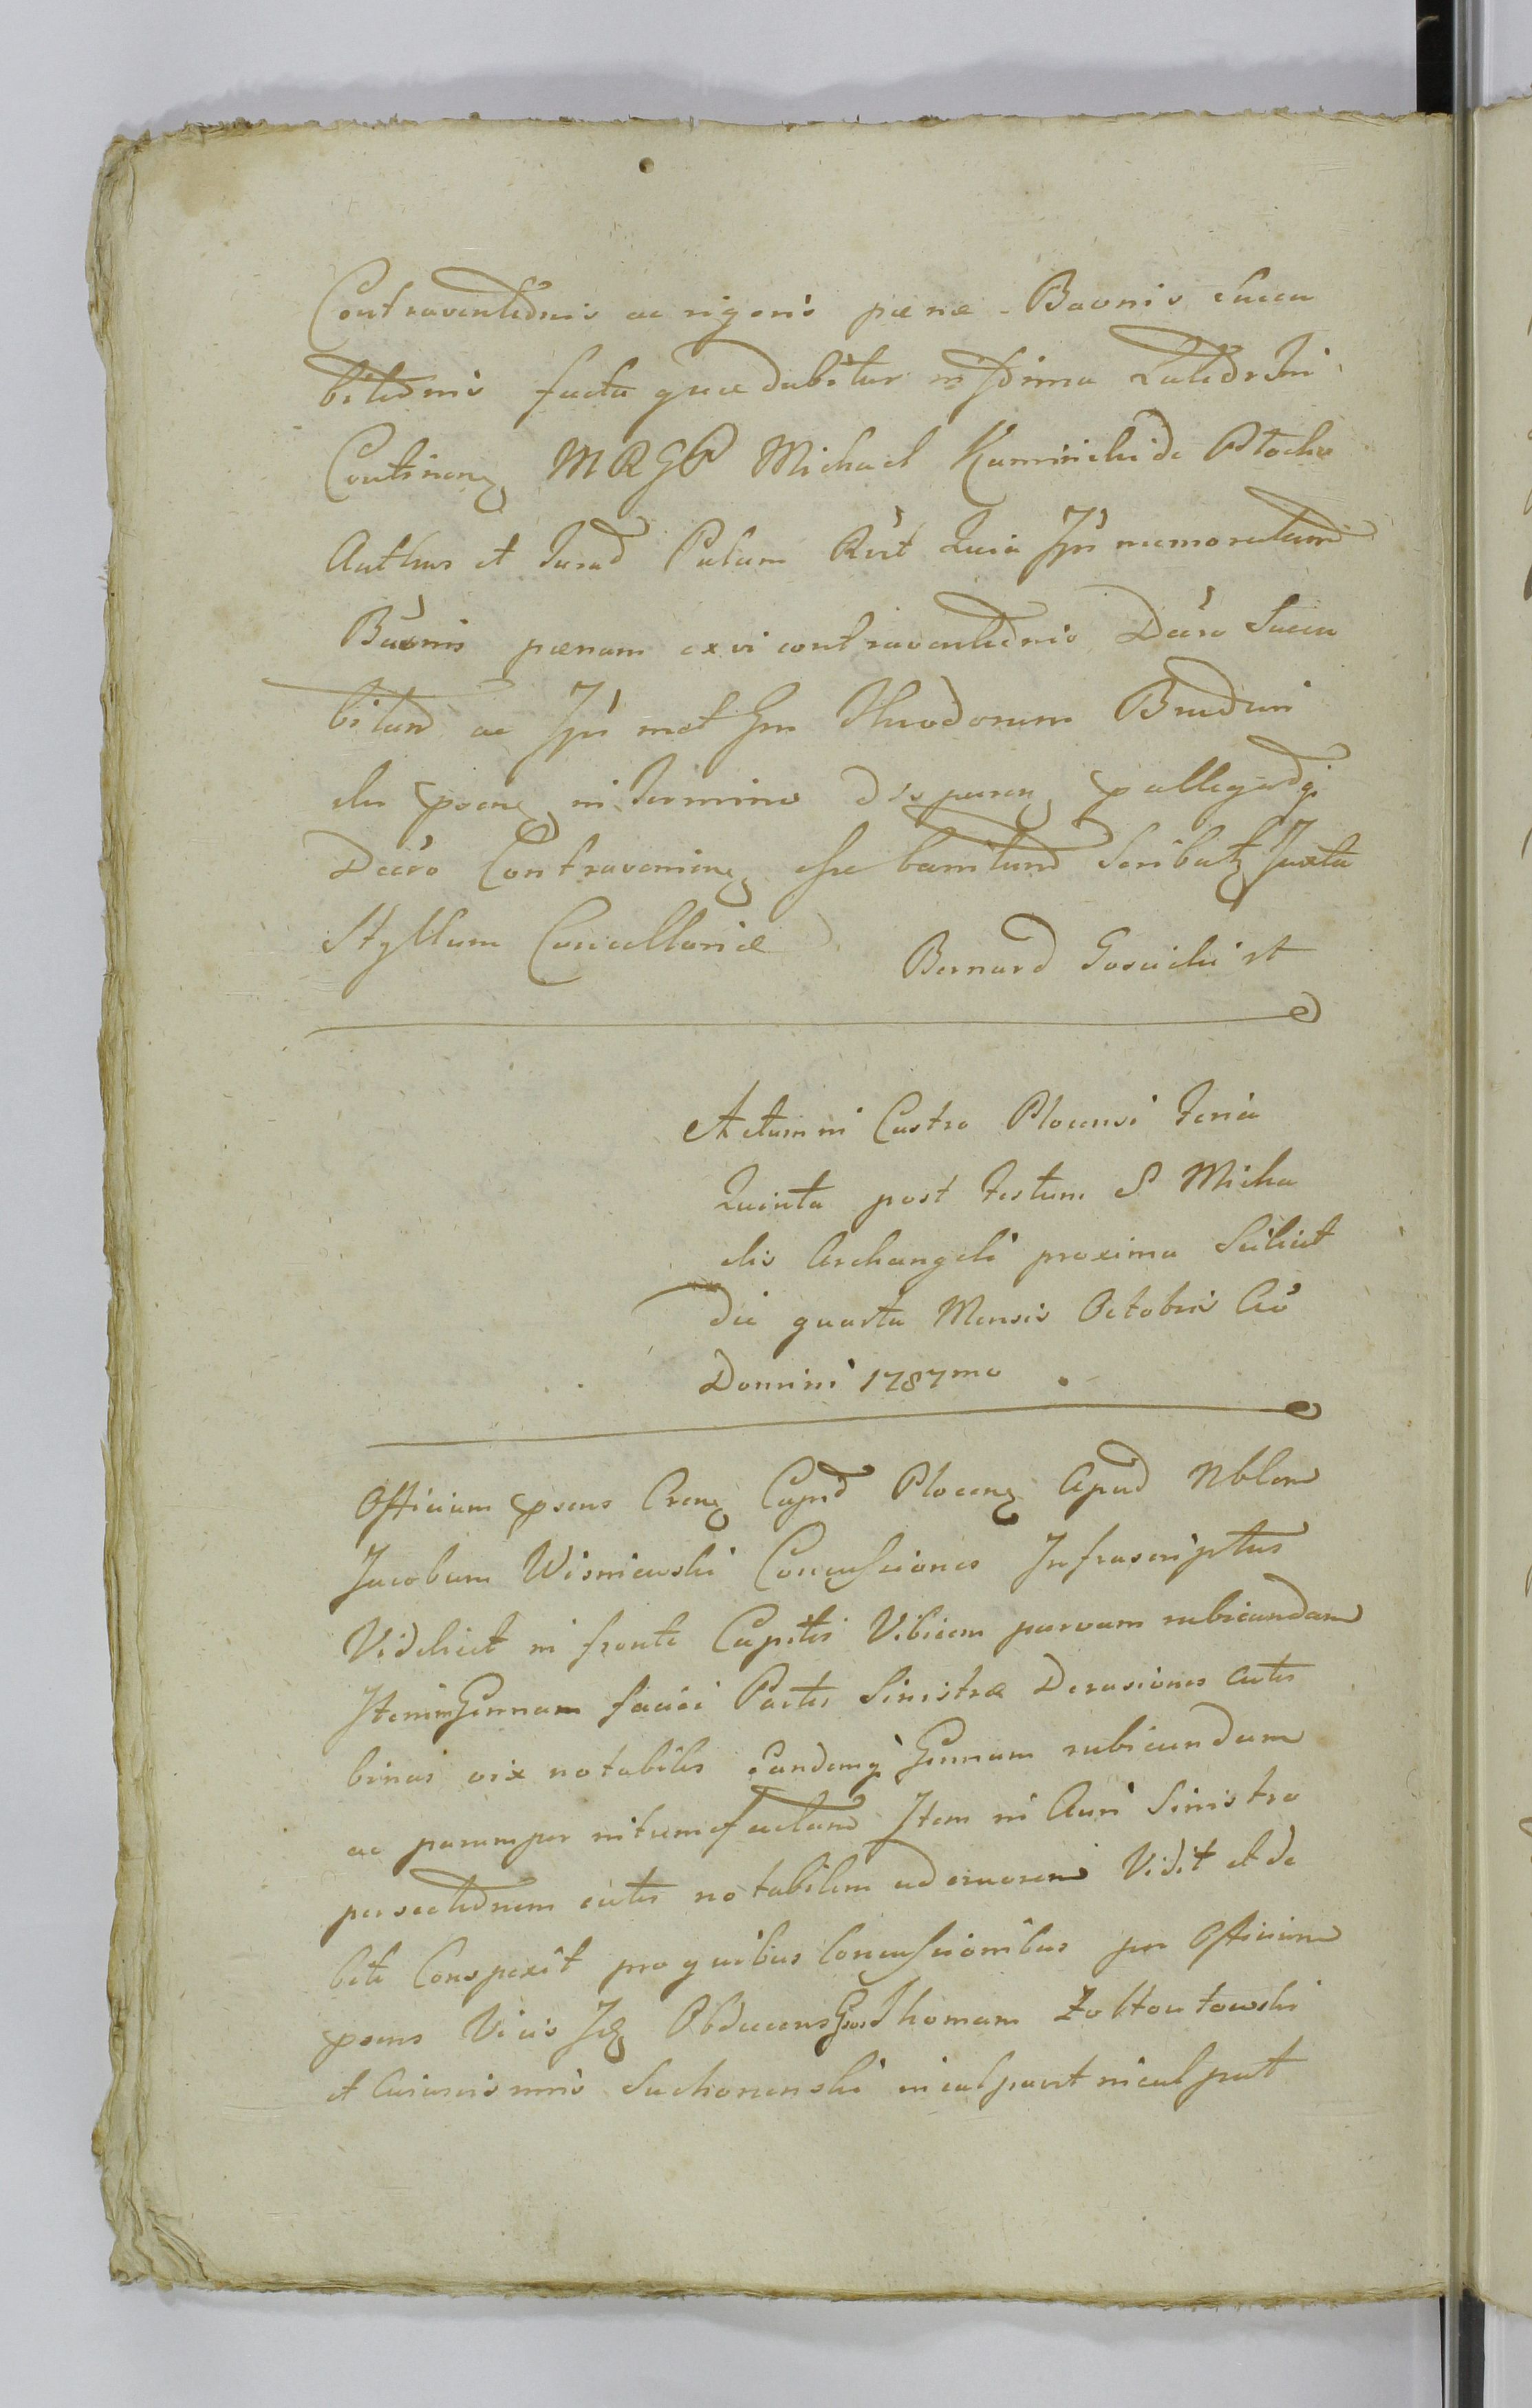 Contraventionis ac rigoris pœnæ Baonis succu
bitionis facta quæ dabitur in
Continen MRGP Michael Kaminski de Płocko
Authus et Jurad Palam Rvit Quia Jpi memoratum
Baonis pœnam ex vi contraventionis Dcro Succu
bitum ac Jpi met Gm Theodorum Brudzin
ski in termino
Dcro Contravenien esse banitum Scribat Juxta
Styllum Cancellariæ Bernard Gosicki
Actum in Castro Plocensi Feria
Quinta post Festum S Micha
elis Archangeli proxima Scilicet
die quarta Mensis Octobris Ao
Domini 1787mo
Officium psens Cren Capnd Plocen Apud Nblem
Jacobum Wisniewski Concussiones Infrascriptas
Videlicet in fronte Capitis Vibicem parvam rubicundam
Item in Gennam faciei Partis Sinistræ Derasiones cutis
binas vix notabiles Eandemq Gennam rubicundam
ac parumper intumefactam Item in Auri Sinistra
persectionem cutis notabilem ad cruorem Vidit et de
bite Conspexit pro quibus Concussionibus per Officium
psens Vicis Obducens Gsos Thomam Zołtowtowski
et Suchorenski inculpavit inculpat